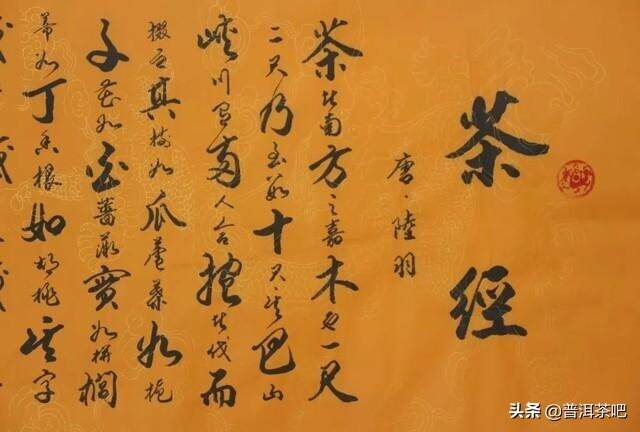 茶經
唐·陸羽
茶者南方之嘉木也一尺
二尺乃至数十尺其巴山
峽川有兩人合抱者伐而
掇之其樹如瓜蘆葉如梔
子花如白薔薇實如栟櫚
蒂如丁香根如胡桃其字
头条 @普洱茶吧